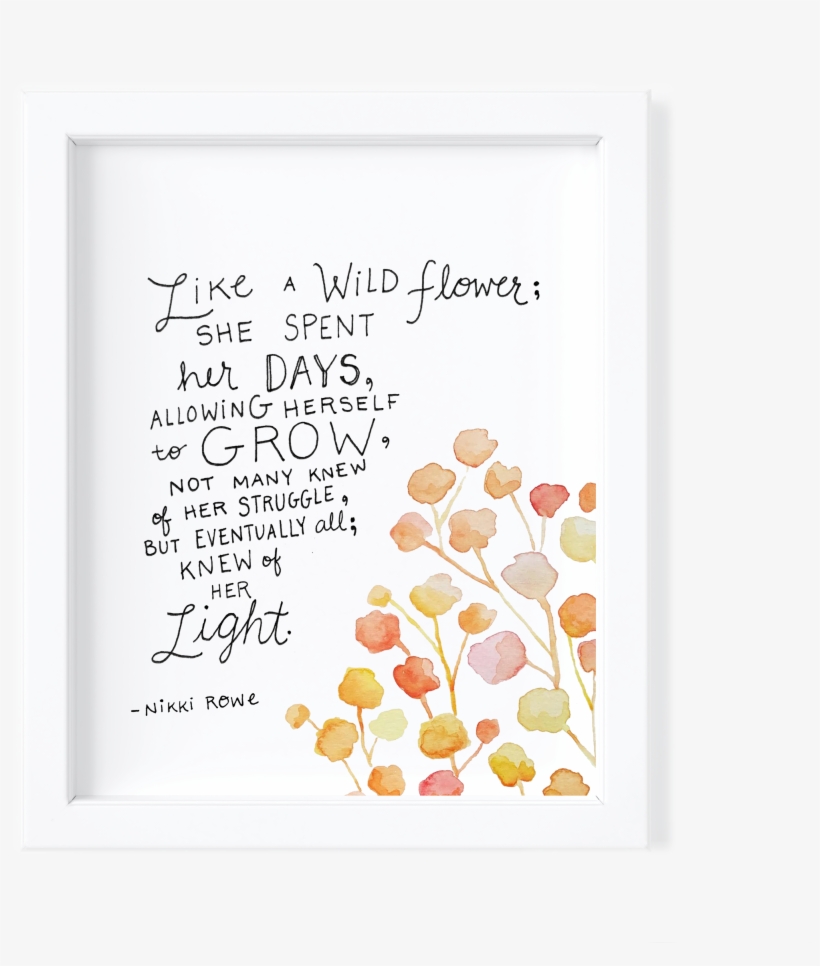 Like A Wild flower;
SHE SPENT
her DAYS,
ALLOWING HERSELF
to GROW,
NOT MANY KNEW
of HER STRUGGLE,
BUT EVENTUALLY all;
KNEW of
HER
Light.
-Nikki Rowe